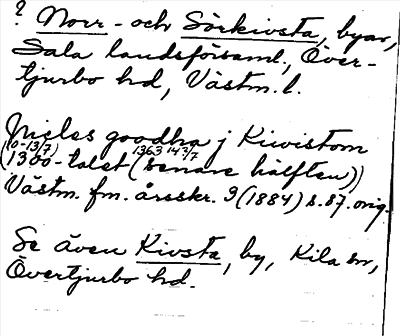 ? Norr- och Sörkivsta, byar,
Sala landsförsaml., Över-
tjurbo hd, Västm. l.
Nicles goodha j Kiwistom
1300-talet (senare hälften))
Västm. fm. årsskr. 3 (1884) s. 87. orig.
Se även Kivsta, by, Kila sn,
Övertjurbo hd.